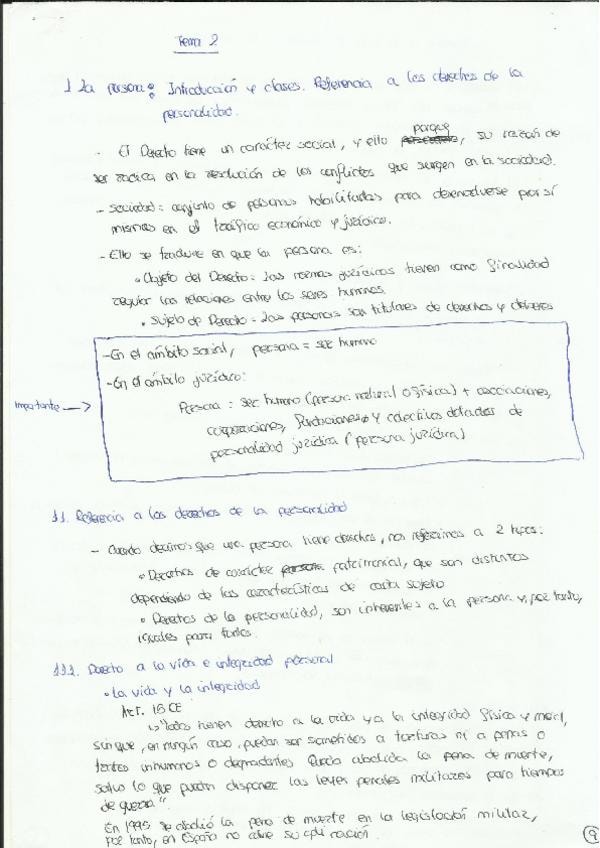 Tema 2
1 La persona: Introducción y clases. Referencia a los derechos de la
personalidad.
porque
- El Derecho tiene un carácter social, y ello, su razón de
ser radica en la resolución de los conflictos que surgen en la sociedad.
- Sociedad: conjunto de personas habilitadas para desenvolverse por sí
mismas en el tráfico económico y jurídico.
- Ello se traduce en que la persona es:
• Objeto del Derecho: Las normas jurídicas tienen como finalidad
regular las relaciones entre los seres humanos.
• Sujeto de Derecho: Las personas son titulares de derechos y deberes
- En el ámbito social, persona = ser humano
- En el ámbito jurídico:
Importante →
Persona = ser humano (persona natural o física) + asociaciones,
corporaciones, fundaciones y colectivos dotados de
personalidad jurídica (persona jurídica)
1.1. Referencia a los derechos de la personalidad
- Cuando decimos que una persona tiene derechos, nos referimos a 2 tipos:
• Derechos de carácter patrimonial, que son distintos
dependiendo de las características de cada sujeto
• Derechos de la personalidad, son inherentes a la persona y, por tanto,
iguales para todos.
1.1.1. Derecho a la vida e integridad personal
• La vida y la integridad
Art. 15 CE
"Todos tienen derecho a la vida y a la integridad física y moral,
sin que, en ningún caso, puedan ser sometidos a torturas ni a penas o
tratos inhumanos o degradantes. Queda abolida la pena de muerte,
salvo lo que puedan disponer las leyes penales militares para tiempos
de guerra".
En 1995 se abolió la pena de muerte en la legislación militar,
por tanto, en España no cabe su aplicación.
9